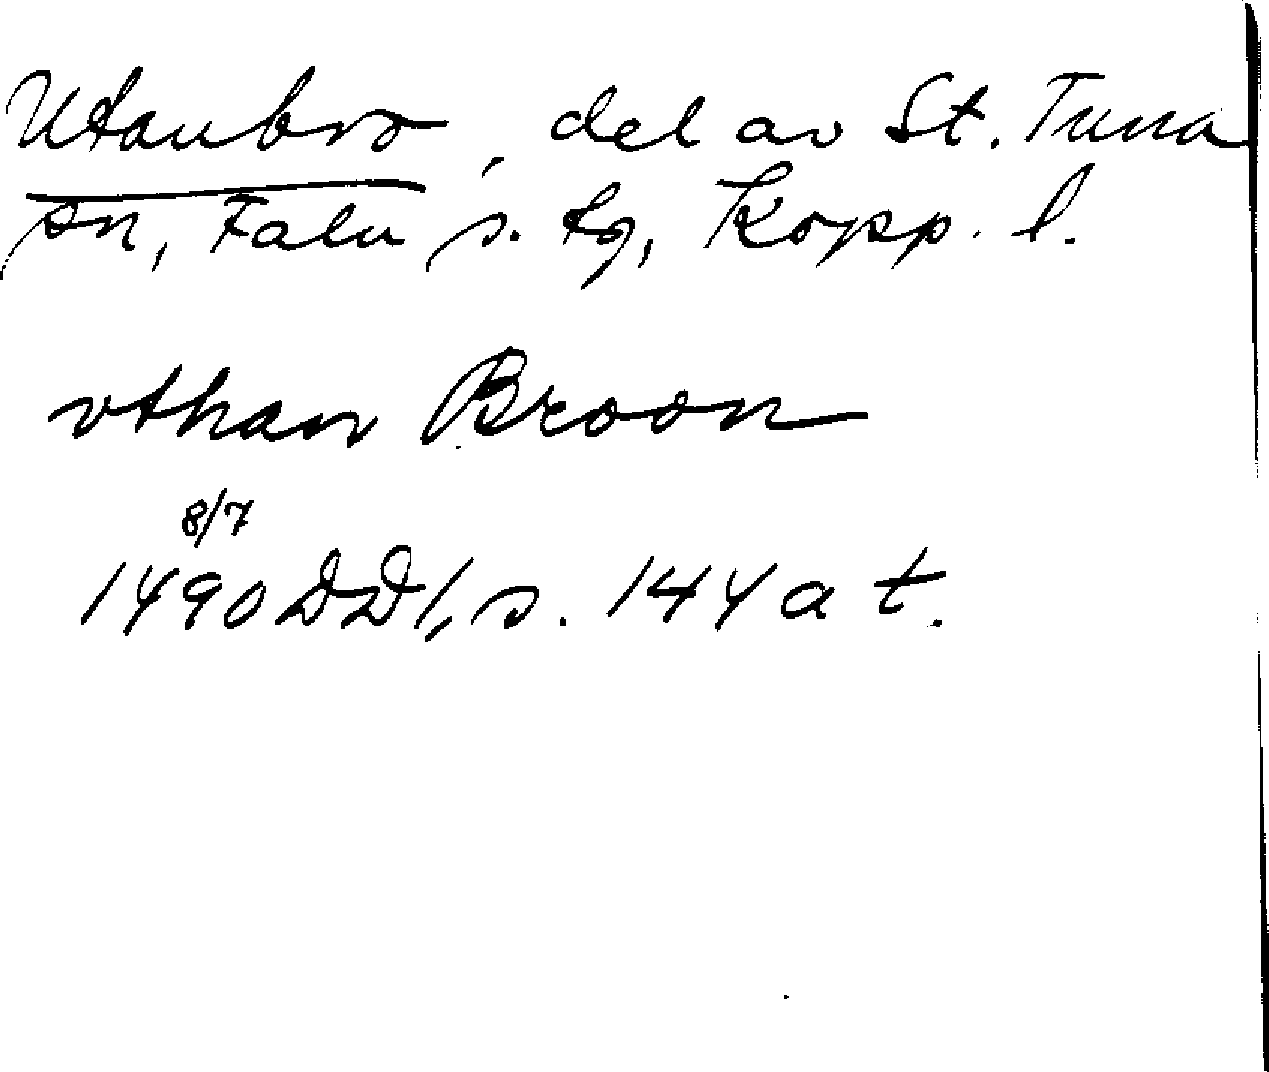 Utanbro, del av St. Tuna
sn, Falu s. tg, Kopp. l.
vthan Broon
8/7
1490 DD1, s. 144 a t.